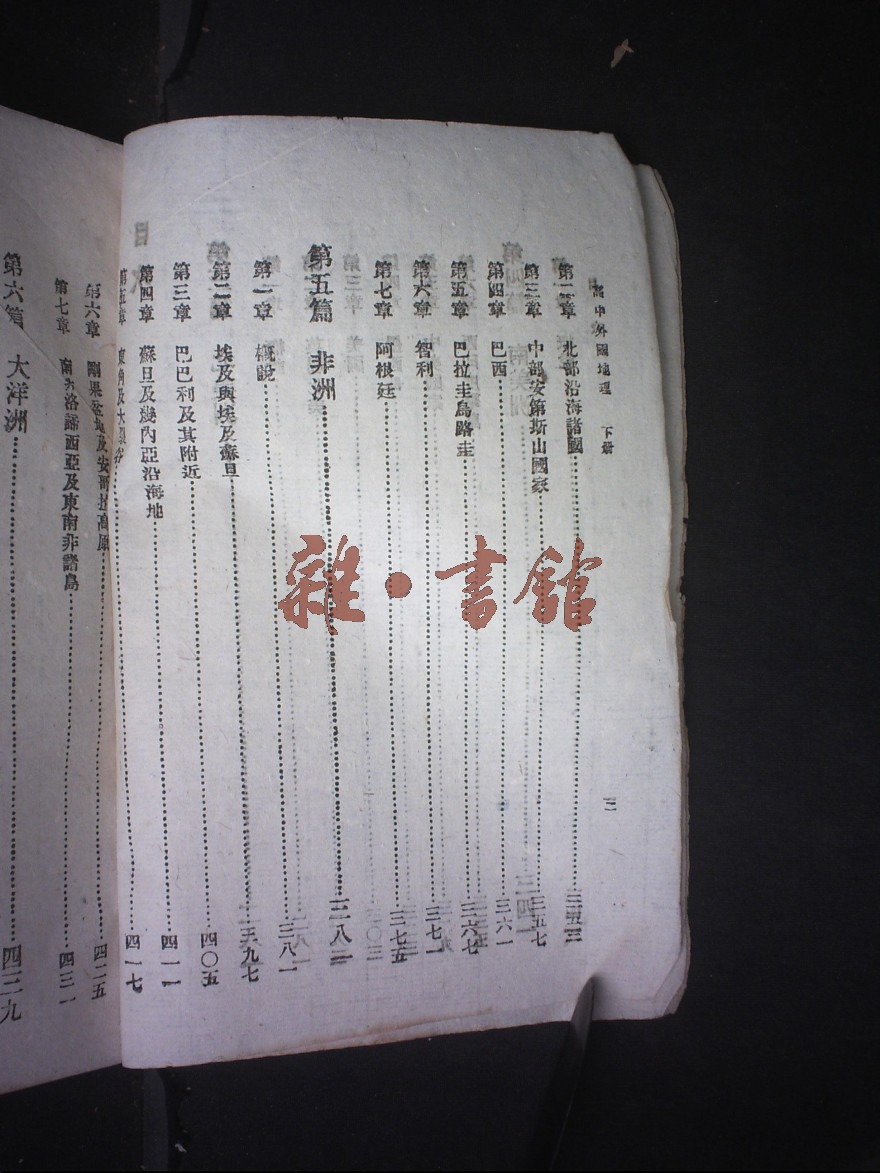 高中外國地理 下册 二
第二章 北部沿海諸國 三五三
第三章 中部安第斯山國家 三五七
第四章 巴西 三六一
第五章 巴拉圭烏路圭 三六七
第六章 智利 三七一
第七章 阿根廷 三七五
第五篇 非洲 三八一
第一章 概說 三八一
第二章 埃及與埃及蘇旦 三九七
第三章 巴巴利及其附近 四〇五
第四章 蘇旦及幾內亞沿海地 四一一
第五章 東角及大裂谷 四一七
第六章 剛果盆地及安哥拉高原 四二五
第七章 南非洛諦西亞及東南非諸島 四三一
第六篇 大洋洲 四三九
雜·書館